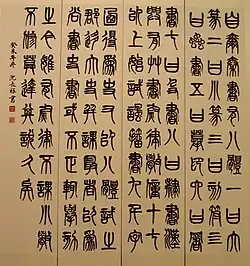 自爾秦書有八體一曰大
篆二曰小篆三曰刻符四
曰蟲書五曰摹印六曰署
書七曰殳書八曰隸書漢
興有草書尉律學僮十七
以上始試諷籀書九千字
乃得為吏又以八體試之
郡移太史并課最者以為
尚書史書或不正輒舉劾
之今雖有尉律不課小學
不修莫達其說久矣
癸亥年
書